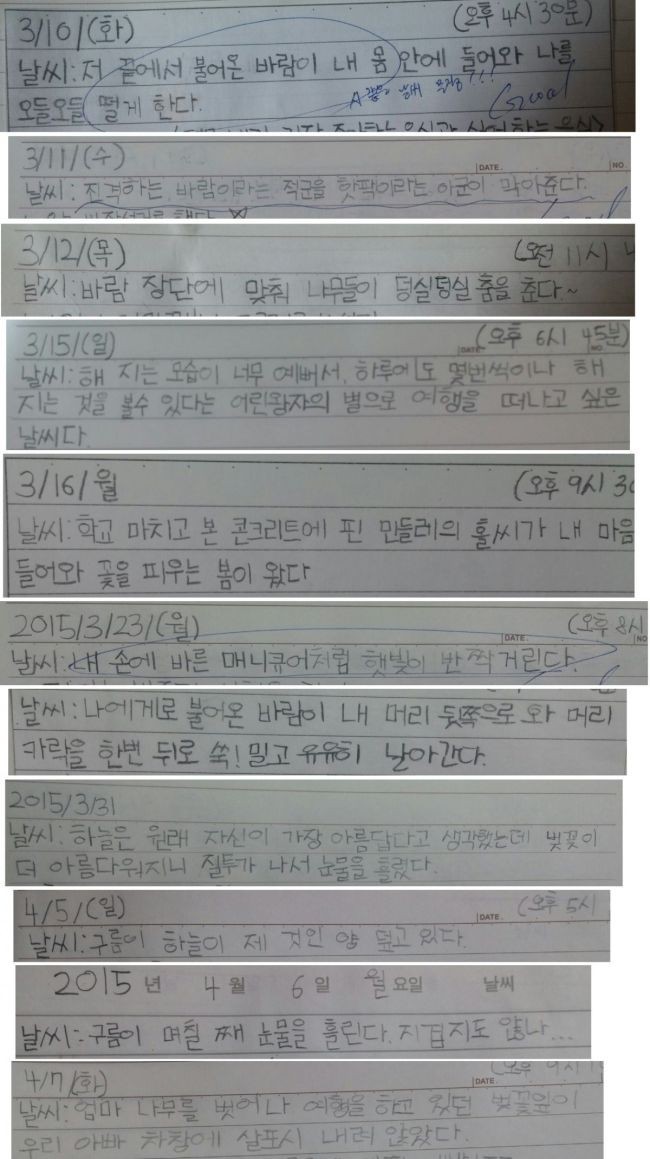 3/10/(화) (오후 4시 30분)
날씨: 저 끝에서 불어온 바람이 내 몸 안에 들어와 나를
오들오들 떨게 한다.
Good
3/11/(수)
DATE. NO.
날씨: 진격하는 바람이라는 적군을 핫팩이라는 아군이 막아준다.
3/12/(목) (오전 11시
날씨: 바람 장단에 맞춰 나무들이 덩실덩실 춤을 춘다~
3/15/(일) (오후 6시 45분)
DATE NO
날씨: 해 지는 모습이 너무 예뻐서, 하루에도 몇번씩이나 해
지는 것을 볼수 있다는 어린왕자의 별으로 여행을 떠나고 싶은
날씨다.
3/16/월 (오후 9시 30
날씨: 학교 마치고 본 콘크리트에 핀 민들레의 홀씨가 내 마음
들어와 꽃을 피우는 봄이 왔다
2015/3/23/(월) (오후 8시
DATE. NO
날씨: 내 손에 바른 매니큐어처럼 햇빛이 반짝거린다.
날씨: 나에게로 불어온 바람이 내 머리 뒷쪽으로 와 머리
카락을 한번 뒤로 쑥! 밀고 유유히 날아간다.
2015/3/31
날씨: 하늘은 원래 자신이 가장 아름답다고 생각했는데 벚꽃이
더 아름다워지니 질투가 나서 눈물을 흘렸다.
4/5/(일) (오후 5시
DATE.
날씨: 구름이 하늘이 제 것인 양 덮고 있다.
2015 년 4 월 6 일 월 요일 날씨
날씨: 구름이 며칠 째 눈물을 흘린다. 지겹지도 않나...
4/7/(화) (오후 9시
DATE.
날씨: 엄마 나무를 벗어나 여행을 하고 있던 벚꽃잎이
우리 아빠 차창에 살포시 내려 앉았다.